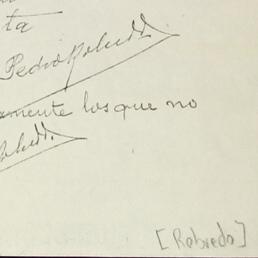 ta
Pedro Robredo
mente los que no
[Robredo]